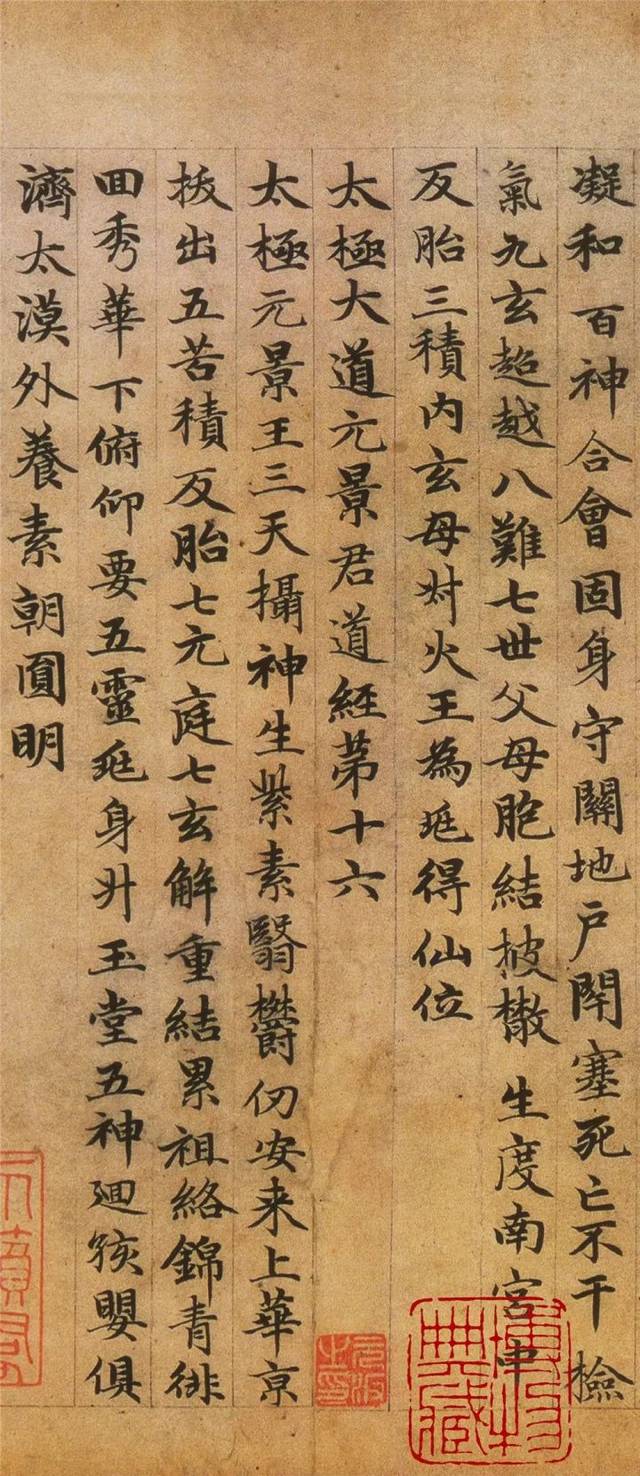 凝和百神合會固身守關地户閇塞死亡不干撿
氣九玄超越八難七世父母胞結披散生度南宫中
反胎三積内玄母对火王為延得仙位
太極大道元景君道經苐十六
太極元景王三天攝神生紫素翳欝仞安来上華京
拔出五苦積反胎七元庭七玄解重結累祖絡錦青徘
回秀華下俯仰要五靈延身升玉堂五神廻孩嬰俱
濟太漠外養素朝圓明
博物
典藏